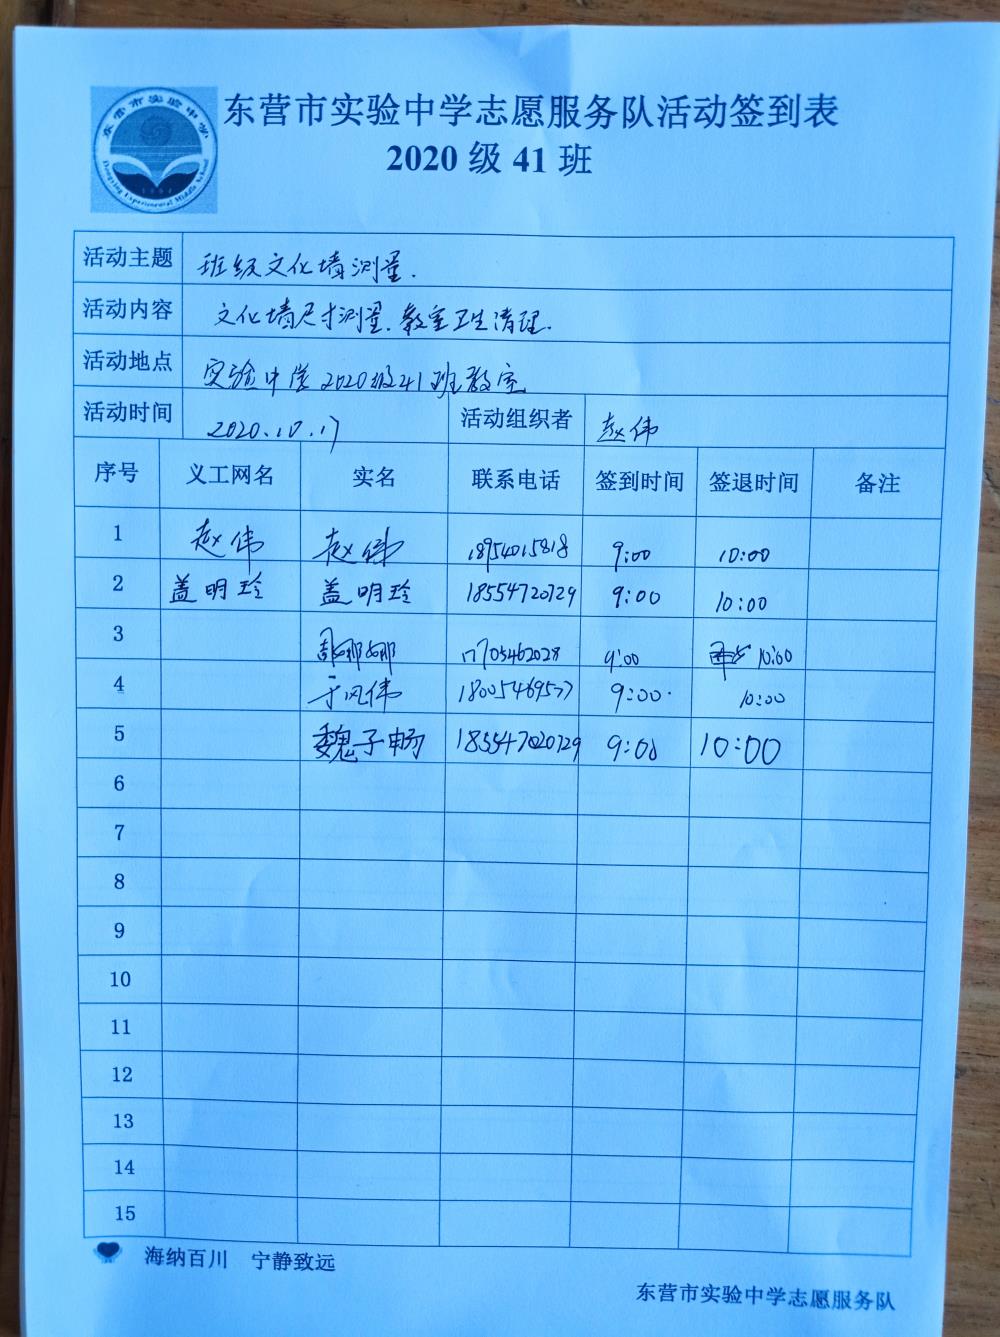 东营市实验中学
Dongying Experimental Middle School
东营市实验中学志愿服务队活动签到表
2020 级 41 班
活动主题 班级文化墙测量.
活动内容 文化墙尺寸测量.教室卫生清理.
活动地点 实验中学2020级41班教室
活动时间 2020.10.17 活动组织者 赵伟
序号 义工网名 实名 联系电话 签到时间 签退时间 备注
1 赵伟 赵伟 18954015818 9:00 10:00
2 盖明玲 盖明玲 18554720729 9:00 10:00
3 9:00 10:00
4 于风伟 18005469577 9:00 10:00
5 魏子畅 9:00 10:00
6
7
8
9
10
11
12
13
14
15
海纳百川 宁静致远
东营市实验中学志愿服务队